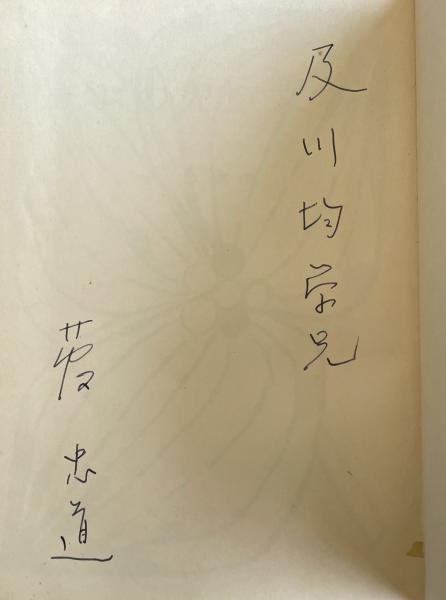 及川均学兄
忠道